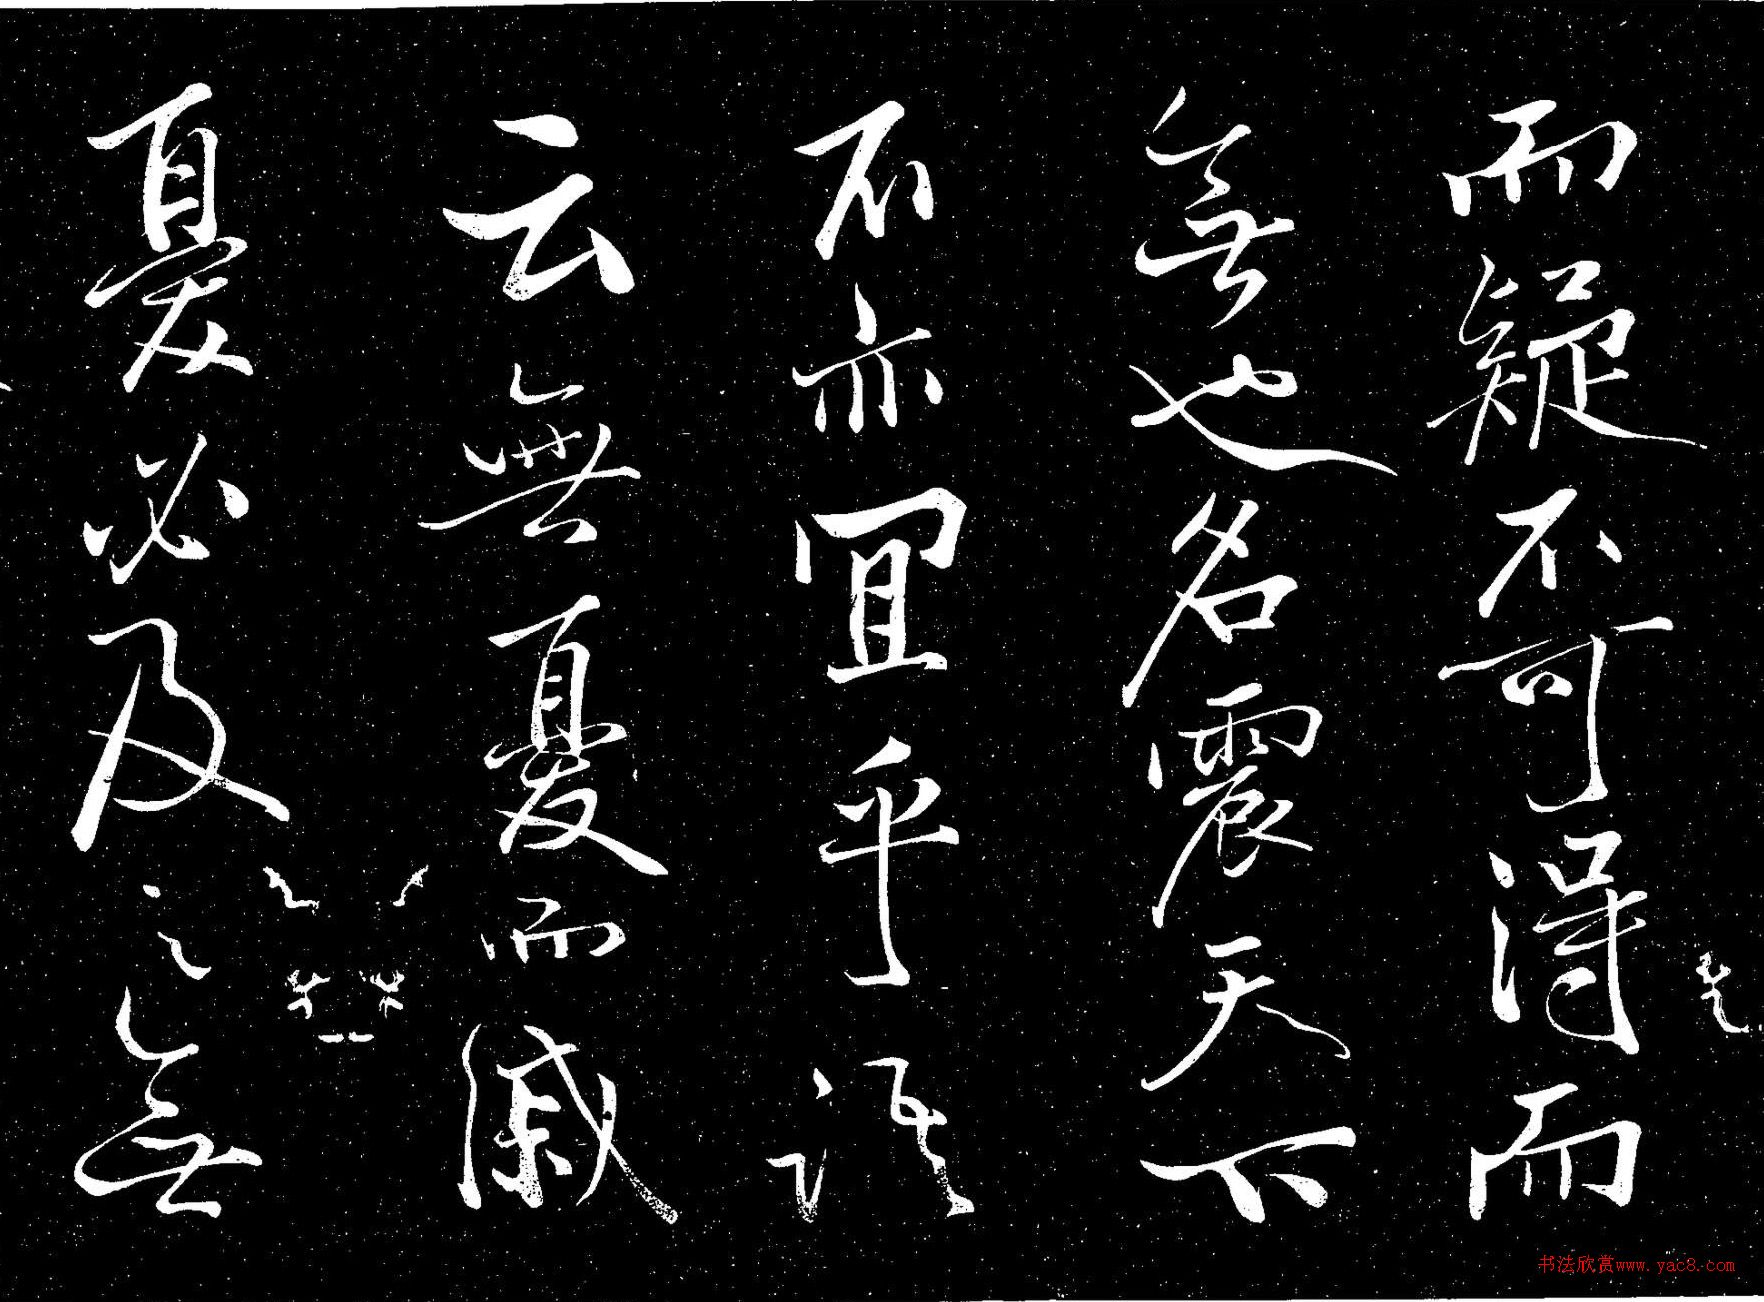 而疑不可得而
無也名震天下
不亦宜乎語
云無憂而戚
憂必及之無
书法欣赏www.yac8.com